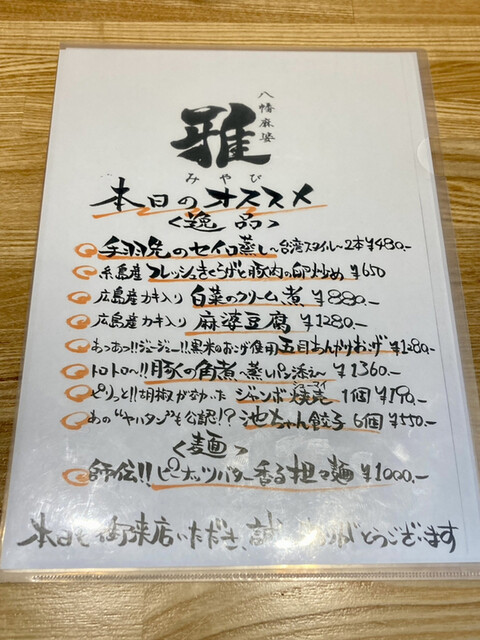 八幡麻婆
雅
みやび
本日のオススメ
<逸品>
手羽先のセイロ蒸し〜台湾スタイル〜2本¥480.-
糸島産フレッシュきくらげと豚肉の卵炒め ¥650
広島産カキ入り 白菜のクリーム煮 ¥880.-
広島産カキ入り 麻婆豆腐 ¥1280.-
あっつあっつ!!ジュージュー!!黒米のおこげ使用五目あんかけおこげ ¥1280-
トロトロ〜!!豚の角煮〜蒸しパン添え〜 ¥1360.-
ピリッと!!胡椒が効いた ジャンボ焼売 1個¥190.-
シューマイ
あの"ヤハタン"も公認!?池ちゃん餃子 6個¥550.-
<麺>
師伝!!ピーナッツバター香る担々麺 ¥1000.-
本日も御来店いただき、誠 ありがとうございます